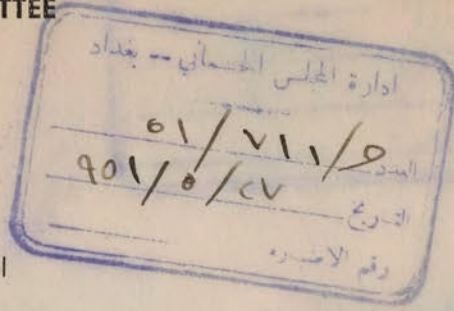 TTEE
ادارة المجلس الجسماني -- بغداد
العدد ٥١/٧١١/٥
التاريخ ٩٥١/٥/٢٧
رقم الاضبارة